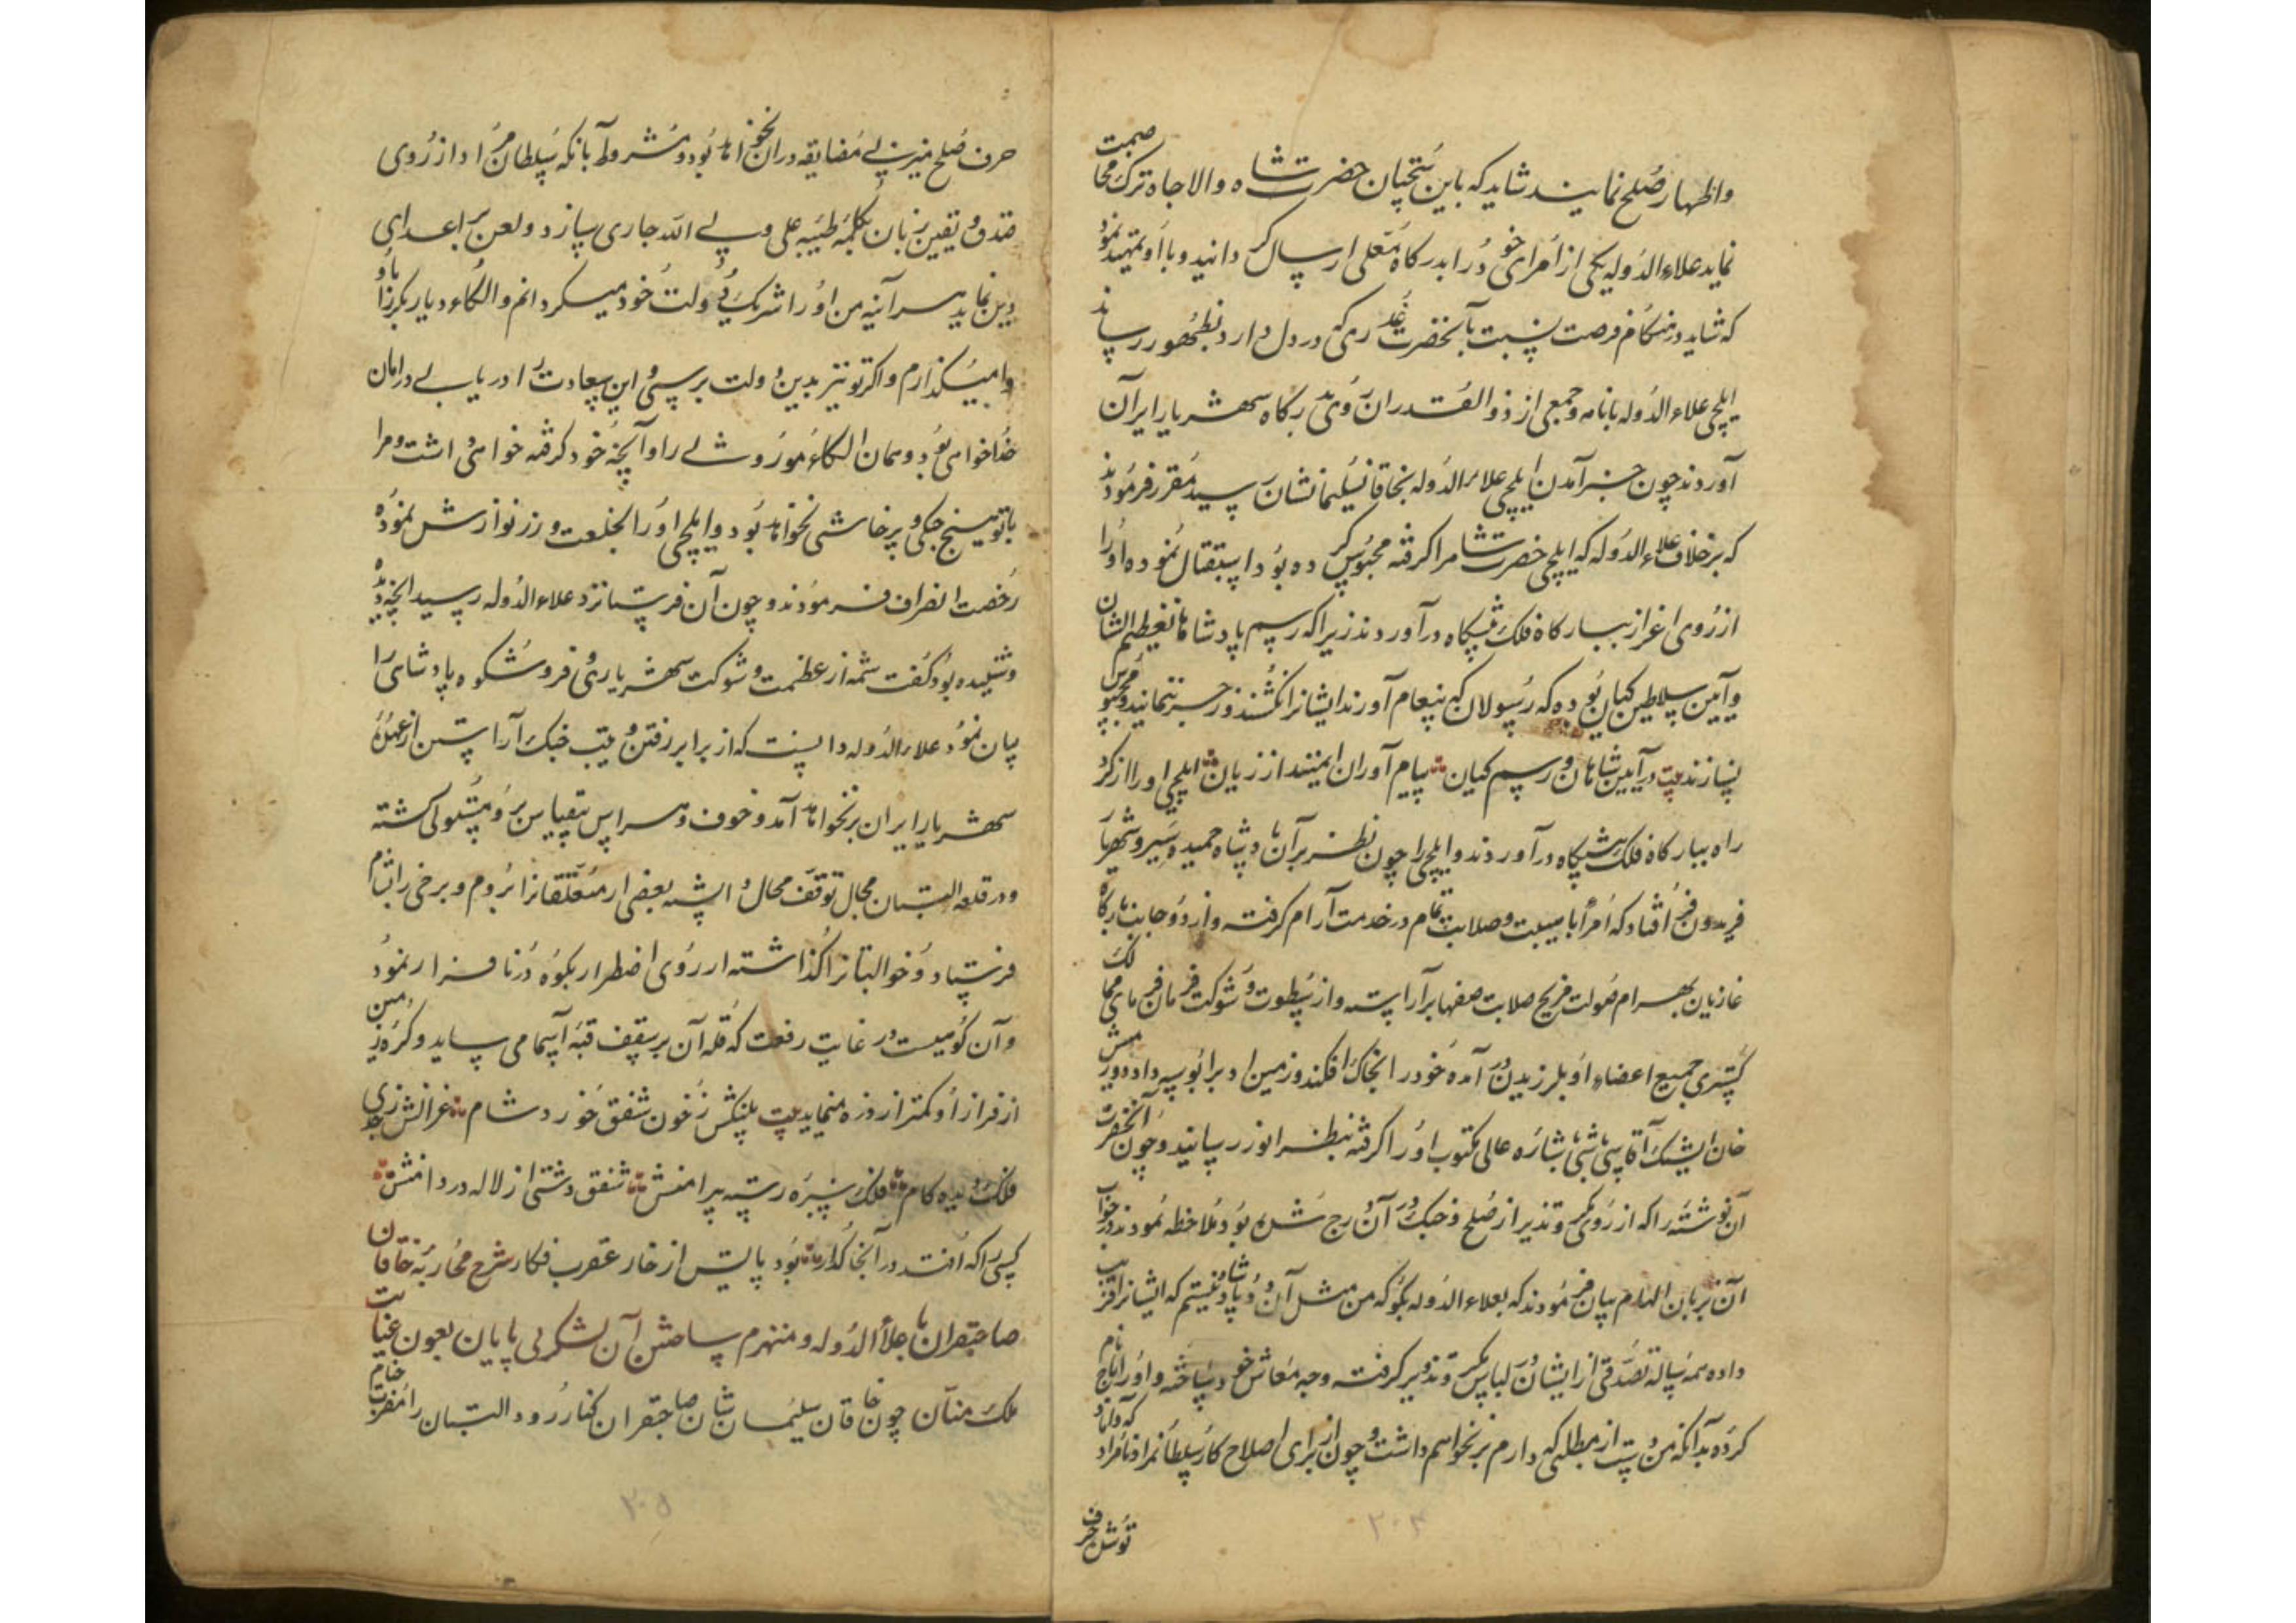 و اظهار صلح نمایند شاید که باین سخنان حضرت شاه والاجاه ترک مخاصمت
نماید علاءالدوله یکی از امرای خود را بدرکاه معلی ارسال کردانید و با او تمهید نمود
که شاید در هنکام فرصت نسبت بآنحضرت غدری که در دل دارد بظهور رساند
ایلچی علاءالدوله با نامه و جمعی از ذوالقدران روی بدرکاه شهریار ایران
آوردند چون خبر آمدن ایلچی علاءالدوله بخاقان سلیمانشان رسید مقرر فرمودند
که بر خلاف علاءالدوله که ایلچی حضرت شاه را کرفته محبوس کرده بود استقبال نموده او را
از روی اعزاز ببارکاه فلک پیشکاه درآوردند زیرا که رسم پادشاهان عظیم الشان
و آیین سلاطین کیان بوده که رسولان که پیغام آورند ایشانرا نکشند و زجر ننمایند و محبوس
نسازند بیت در آیین شاهان و رسم کیان پیام آوران ایمنند از زیان ایلچی او را از کرد
راه ببارکاه فلک پیشکاه درآوردند و ایلچی را چون نظر بر آن پادشاه جمشید سیر و شهریار
فریدون فر افتاد که امرا با هیبت و صلابت تمام در خدمت آرام کرفته و از دو جانب بارکاه
غازیان بهرام صولت مریخ صلابت صفها برآراسته و از سطوت و شوکت فرمان فرمای ممالک
کستری جمیع اعضاء او بلرزیدن در آمده خود را بخاک افکند و زمین ادب را بوسه داده دورمش
خان ایشک آقاسی باشی باشاره عالی مکتوب او را کرفته بنظر انور رسانید و چون آنحضرت
آن نوشته را که از روی مکر و تذویر از صلح و جنک در آن درج شده بود ملاحظه نمودند در جواب
آن بزبان الهام بیان فرمودند که بعلاءالدوله بکو که من مثل آن دو پادشاه نیستم که ایشانرا فریب
داده همه ساله تصدقی از ایشان در لباس مکر و تذویر کرفته وجه معاش خود ساخته و او را باج نام
کرده بدآنکه من دست از مطلبی که دارم برنخواهم داشت و چون از برای اصلاح کار سلطانمراد نامراد که داماد
توست حرف
حرف صلح میزنی مضایقه در آن نخواهد بود مشروط بآنکه سلطان مراد از روی
صدق و یقین زبان بکلمه طیبه علی ولی الله جاری سازد و لعن بر اعدای
دین نماید هر آینه من او را شریک دولت خود میکردانم و الکاء دیار بکر را باو
وا میکذارم و اکر تو نیز بدین دولت برسی و این سعادت را دریابی در امان
خدا خواهی بود و همان الکاء موروثی را و آنچه خود کرفته خواهی داشت و مرا
با تو هیچ جنکی و پرخاشی نخواهد بود و ایلچی او را بخلعت و زر نوازش نموده
رخصت انصراف فرمودند و چون آن فرستاده نزد علاءالدوله رسید آنچه دیده
و شنیده بود کفت شمه از عظمت و شوکت شهریاری و فر و شکوه پادشاهی را
بیان نمود علاءالدوله دانست که از برابر رفتن و ترتیب جنک آراستن از عهده
شهریار ایران برنخواهد آمد و خوف و هراس بیقیاس بر وی مستولی کشته
و در قلعه البستان مجال توقف محال دانسته بعضی از متعلقانرا بروم و برخی را بشام
فرستاد و خود البستانرا کذاشته از روی اضطرار بکوه درنا فرار نمود
و آن کوهیست در غایت رفعت که قله آن بر سقف قبه آسمان می ساید و کره زمین
از فراز او کمتر از ذره مینماید بیت پلنکش ز خون شفق خورد شام غزالش ز جدی
فلک دیده کام فلک سبزه رسته پیرامنش شفق دشتی از لاله در دامنش
کسی را که افتد در آنجا کذار بود پایش از خار عقرب فکار شرح محاربه خاقان
صاحبقران با علاءالدوله و منهزم ساختن آن لشکر بی پایان بعون عنایت
ملک منان چون خاقان سلیمان شان صاحبقران کنار رود البستان را مضرب خیام
۲۰۵
۲۰۴